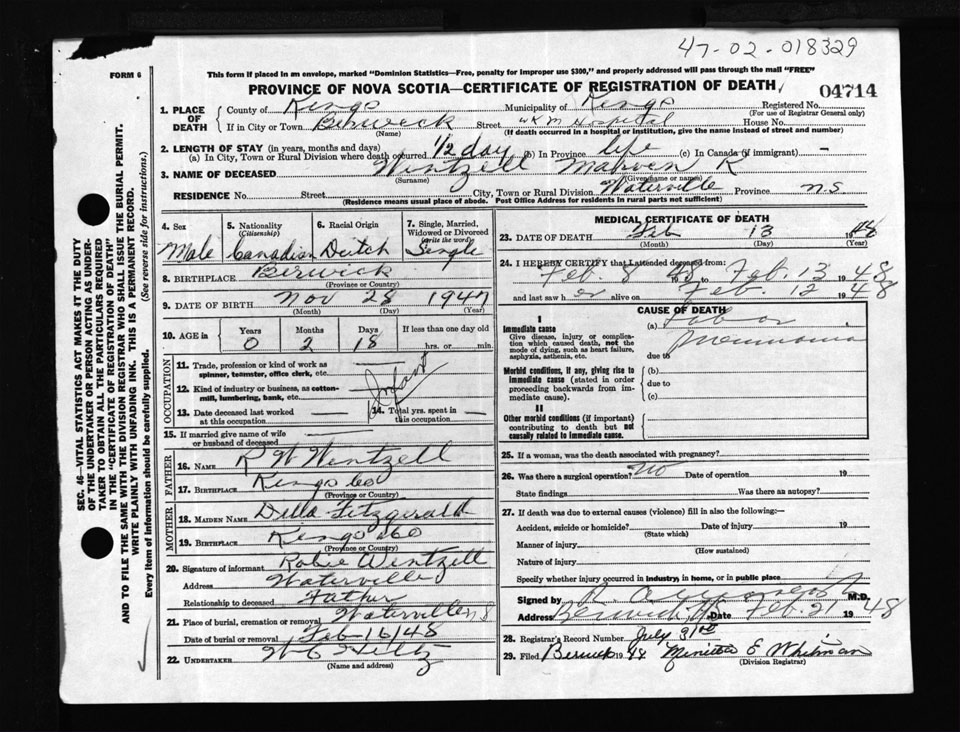 47-02-018329
FORM 6
This form if placed in an envelope, marked "Dominion Statistics—Free, penalty for improper use $300," and properly addressed will pass through the mail "FREE"
PROVINCE OF NOVA SCOTIA—CERTIFICATE OF REGISTRATION OF DEATH
04714
1. PLACE OF DEATH County of Kings Municipality of Kings Registered No.
(For use of Registrar General only)
If in City or Town Berwick Street W K M Hospital House No.
(Name) (If death occurred in a hospital or institution, give the name instead of street and number)
2. LENGTH OF STAY (in years, months and days)
(a) In City, Town or Rural Division where death occurred 1/2 day (b) In Province life (c) In Canada (if immigrant) —
3. NAME OF DECEASED Wentzell R
(Surname) (Given name or names)
RESIDENCE No. Street City, Town or Rural Division Waterville Province N.S
(Residence means usual place of abode. Post Office Address for residents in rural parts not sufficient)
4. Sex 5. Nationality (Citizenship) 6. Racial Origin 7. Single, Married, Widowed or Divorced (write the word)
Male Canadian Dutch Single
8. BIRTHPLACE Berwick
(Province or Country)
9. DATE OF BIRTH Nov 28 1947
(Month) (Day) (Year)
10. AGE in Years Months Days If less than one day old
0 2 18 hrs. or min.
OCCUPATION
11. Trade, profession or kind of work as spinner, teamster, office clerk, etc.
12. Kind of industry or business, as cotton-mill, lumbering, bank, etc.
Infant
13. Date deceased last worked at this occupation 14. Total yrs. spent in this occupation
15. If married give name of wife or husband of deceased
FATHER
16. NAME R W Wentzell
17. BIRTHPLACE Kings Co
(Province or Country)
MOTHER
18. MAIDEN NAME Della Fitzgerald
19. BIRTHPLACE Kings Co
(Province or Country)
20. Signature of informant Robie Wentzell
Address Waterville
Relationship to deceased Father
21. Place of burial, cremation or removal Waterville N S
Date of burial or removal Feb 16/48
22. UNDERTAKER W C Hiltz
(Name and address)
MEDICAL CERTIFICATE OF DEATH
23. DATE OF DEATH Feb 13 1948
(Month) (Day) (Year)
24. I HEREBY CERTIFY that I attended deceased from:
Feb. 8 48 to Feb. 13 1948
and last saw h er alive on Feb. 12 1948
CAUSE OF DEATH
I
Immediate cause
Give disease, injury or complication which caused death, not the mode of dying, such as heart failure, asphyxia, asthenia, etc.
(a) Lobar
Pneumonia
due to
Morbid conditions, if any, giving rise to immediate cause (stated in order proceeding backwards from immediate cause).
(b)
due to
(c)
II
Other morbid conditions (if important) contributing to death but not causally related to immediate cause.
25. If a woman, was the death associated with pregnancy?
26. Was there a surgical operation? No Date of operation 19
State findings Was there an autopsy?
27. If death was due to external causes (violence) fill in also the following:—
Accident, suicide or homicide? Date of injury 19
(State which)
Manner of injury
(How sustained)
Nature of injury
Specify whether injury occurred in industry, in home, or in public place
Signed by M.D.
Address Berwick, N.S. Date Feb. 21 1948
28. Registrar's Record Number July 31st
29. Filed Berwick 1948 E Whitman
(Division Registrar)
SEC. 46—VITAL STATISTICS ACT MAKES IT THE DUTY
OF THE UNDERTAKER OR PERSON ACTING AS UNDER-
TAKER TO OBTAIN ALL THE PARTICULARS REQUIRED
IN THE "CERTIFICATE OF REGISTRATION OF DEATH"
AND TO FILE THE SAME WITH THE DIVISION REGISTRAR WHO SHALL ISSUE THE BURIAL PERMIT.
WRITE PLAINLY WITH UNFADING INK. THIS IS A PERMANENT RECORD.
Every item of information should be carefully supplied. (See reverse side for instructions.)